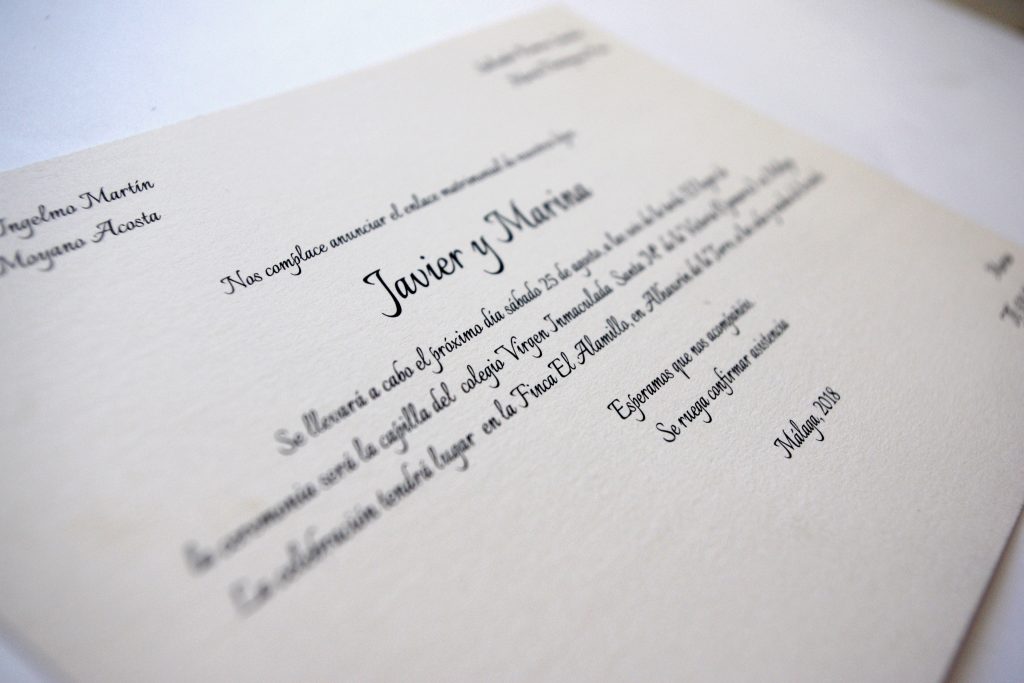 Ingelmo Martín
Moyano Acosta
Nos complace anunciar el enlace matrimonial de nuestros hijos
Javier y Marina
Se llevará a cabo el próximo día sábado 25 de agosto, a las seis de la tarde. El lugar de
la ceremonia será la capilla del colegio Virgen Inmaculada Santa Mª de la Victoria
La celebración tendrá lugar en la Finca El Alamillo, en Alhaurín de la Torre, a las
Esperamos que nos acompañéis.
Se ruega confirmar asistencia
Málaga, 2018